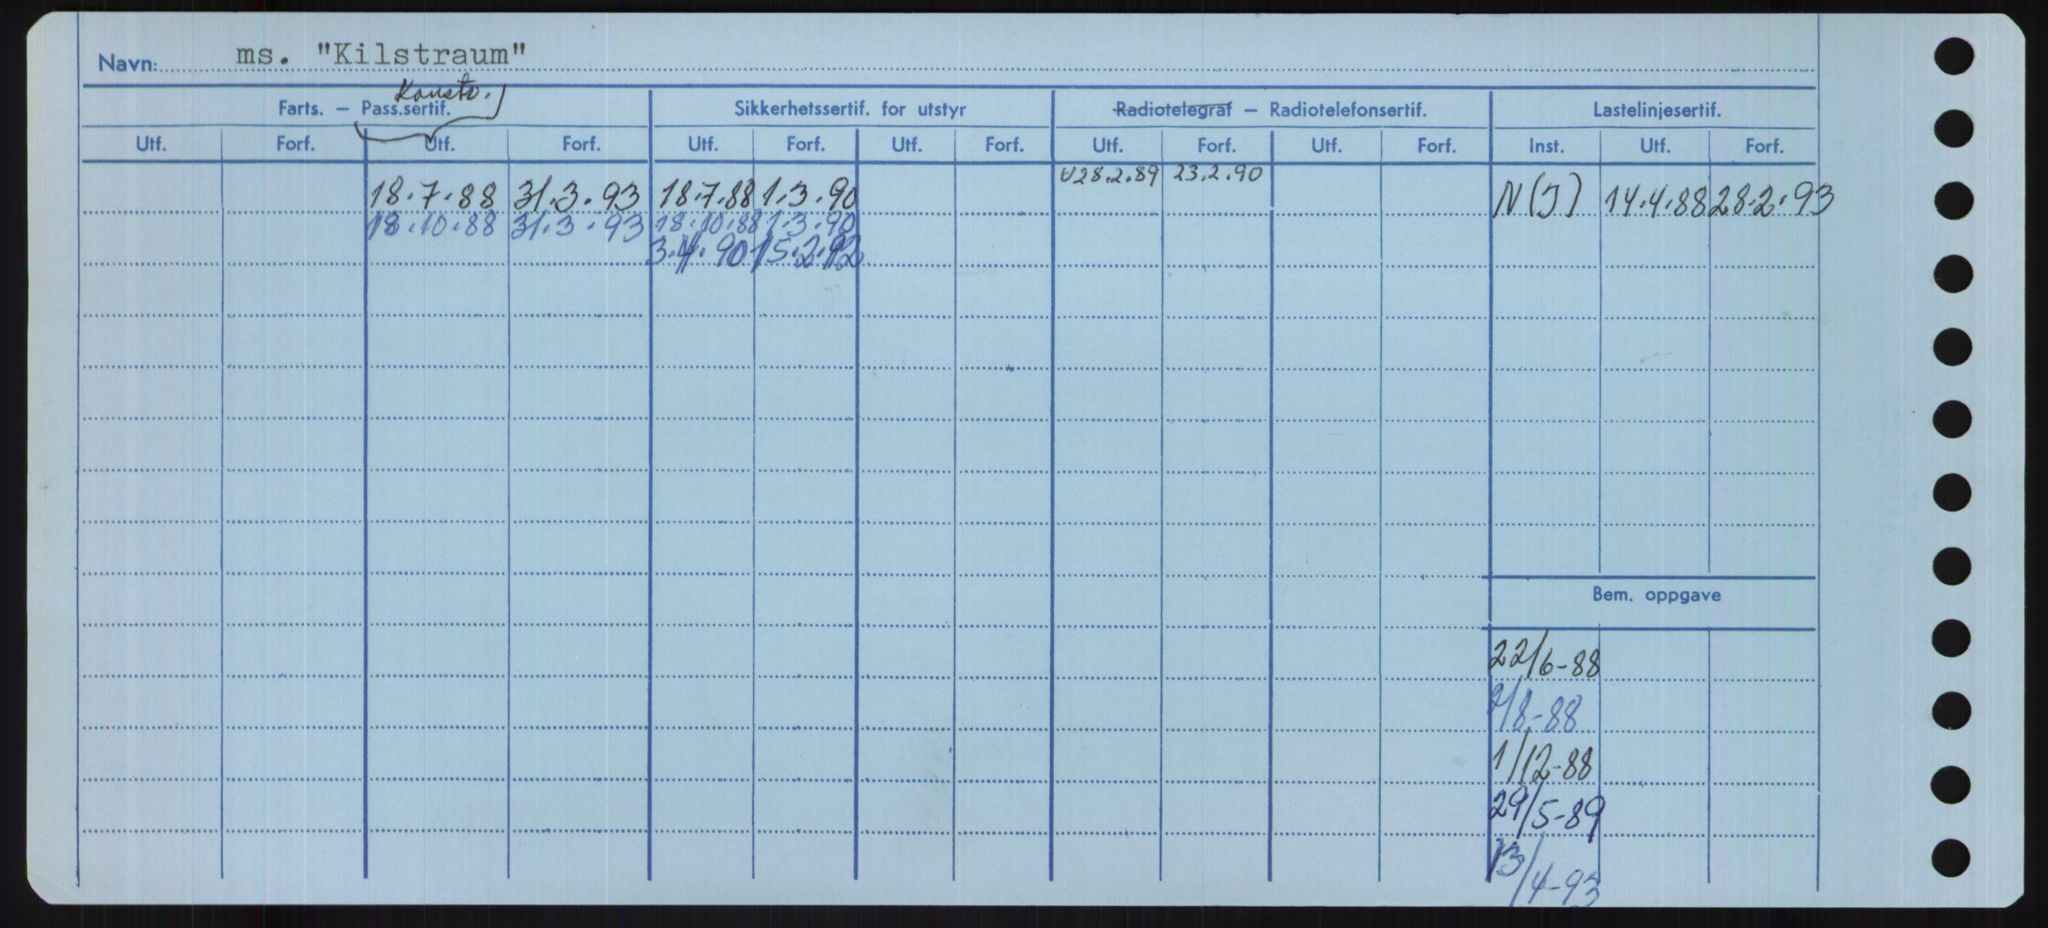 Navn: ms. "Kilstraum"
Konstr.
Farts. – Pass.sertif. Sikkerhetssertif. for utstyr Radiotelegraf – Radiotelefonsertif. Lastelinjesertif.
Utf. Forf. Utf. Forf. Utf. Forf. Utf. Forf. Utf. Forf. Utf. Forf. Inst. Utf. Forf.
18.7.88 31.3.93 18.7.88 1.3.90 U28.2.89 23.2.90 N(I) 14.4.88 28.2.93
18.10.88 31.3.93 18.10.88 1.3.90
3.4.90 15.2.92
Bem. oppgave
22/6-88
9/8-88
1/12-88
29/5-89
13/4-93